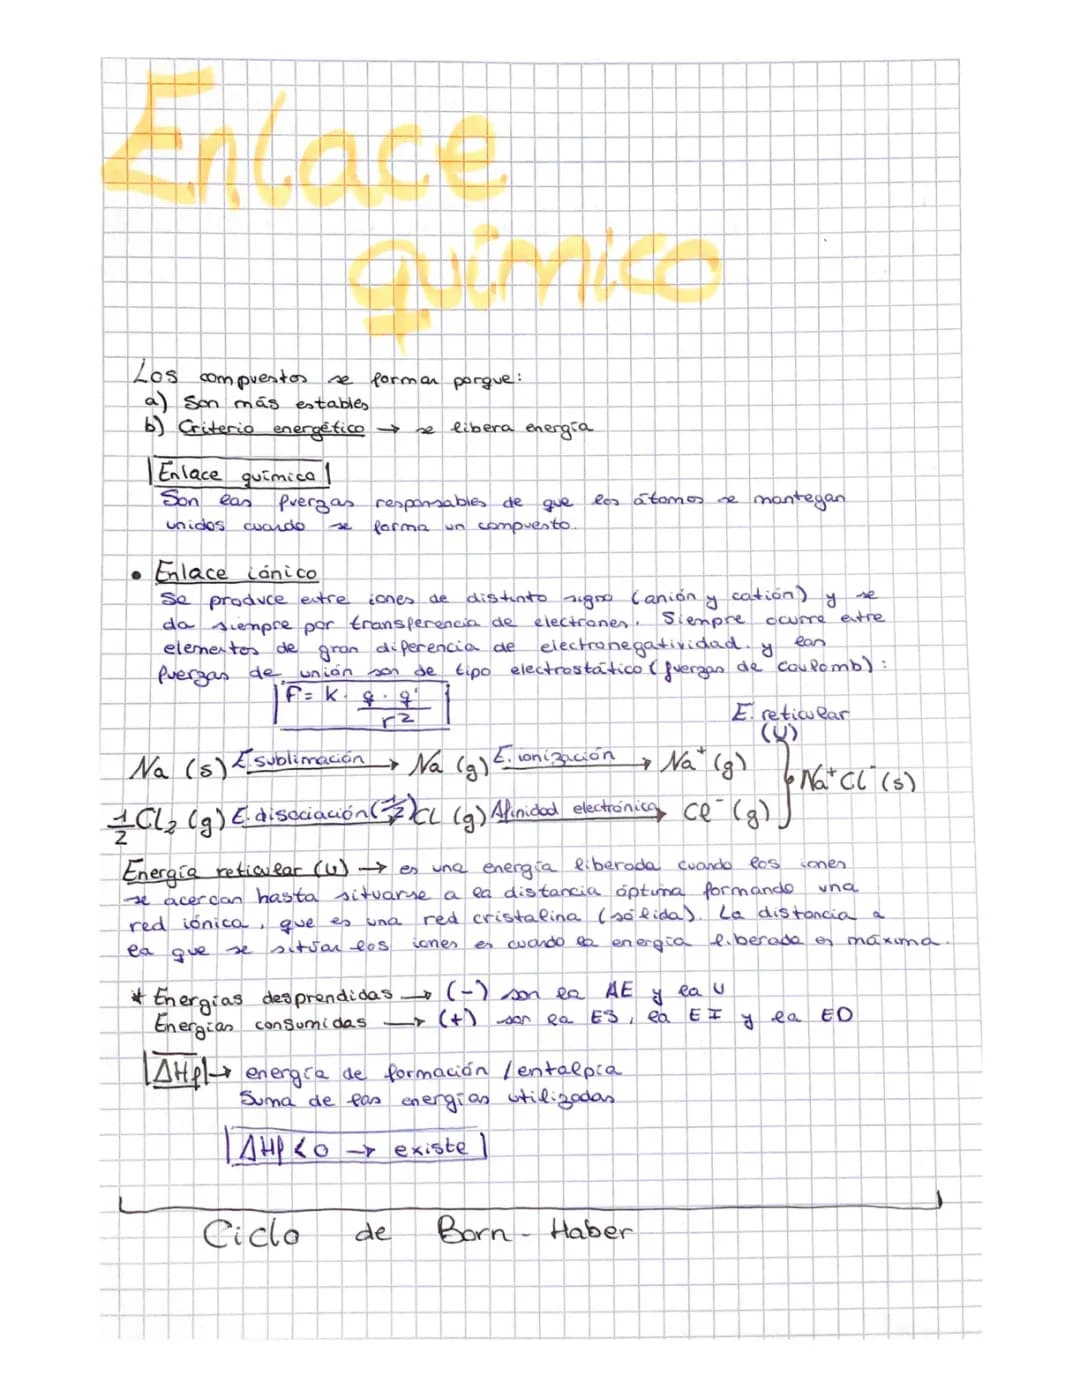 Enlace
químico
Los compuestos se forman porque:
a) Son más estables
b) Criterio energético → se libera energía
Enlace químico
Son las fuerzas responsables de que los átomos se mantegan
unidos cuando se forma un compuesto.
• Enlace iónico
Se produce entre iones de distinto signo (anión y catión) y se
da siempre por transferencia de electrones. Siempre ocurre entre
elementos de gran diferencia de electronegatividad. y las
fuerzas de unión son de tipo electrostático (fuerzas de Coulomb):
F = K · q · q' / r²
E. reticular
(U)
Na (s) E. sublimación → Na (g) E. ionización → Na⁺ (g)
Na⁺Cl⁻ (s)
1/2 Cl₂ (g) E. disociación (1/2) → Cl (g) Afinidad electrónica → Cl⁻ (g)
Energía reticular (U) → es una energía liberada cuando los iones
se acercan hasta situarse a la distancia óptima formando una
red iónica, que es una red cristalina (sólida). La distancia a
la que se sitúan los iones es cuando la energía liberada es máxima.
* Energías desprendidas → (-) son la AE y la U
Energías consumidas → (+) son la ES, la EI y la ED
ΔHf → energía de formación / entalpía
Suma de las energías utilizadas
ΔHf < 0 → existe
Ciclo de Born - Haber